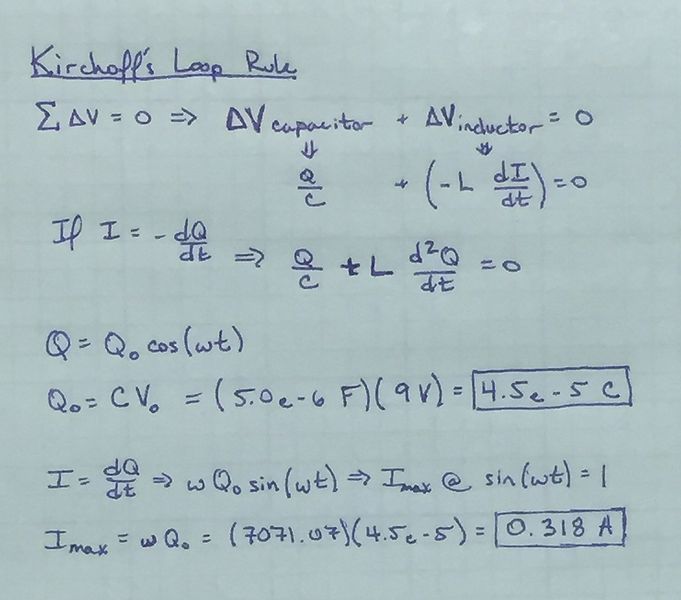 Kirchoff's Loop Rule
Σ ΔV = 0 ⇒ ΔV capacitor + ΔV inductor = 0
⇓ ⇓
Q/C + (-L dI/dt) = 0
If I = -dQ/dt ⇒ Q/C + L d²Q/dt = 0
Q = Q₀ cos(ωt)
Q₀ = CV₀ = (5.0e-6 F)(9V) = 4.5e-5 C
I = dQ/dt ⇒ ωQ₀ sin(ωt) ⇒ Imax @ sin(ωt) = 1
Imax = ωQ₀ = (7071.07)(4.5e-5) = 0.318 A